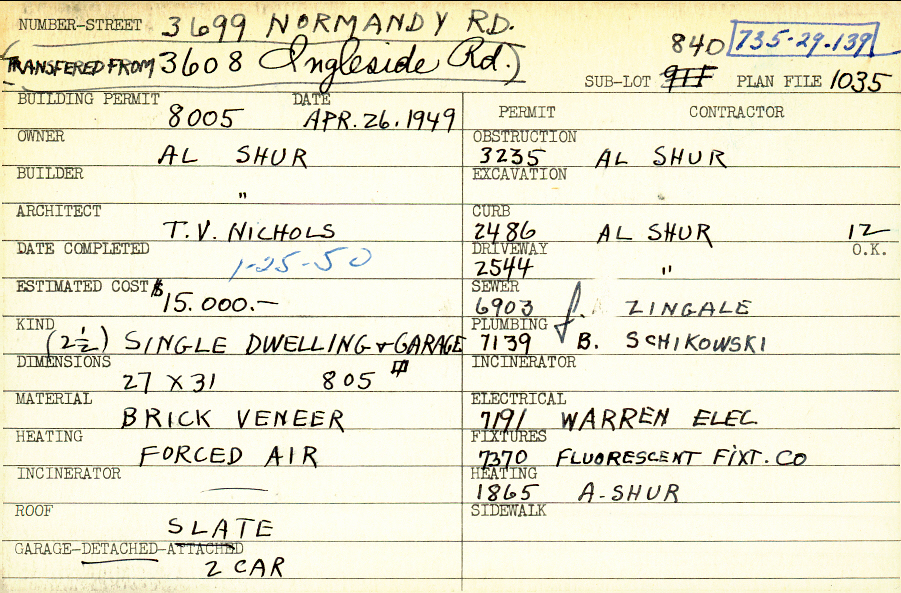 NUMBER-STREET 3699 NORMANDY RD.
(TRANSFERED FROM 3608 Ingleside Rd.)
840 735-29-139
SUB-LOT 911 PLAN FILE 1035
BUILDING PERMIT DATE
8005 APR. 26. 1949
OWNER
AL SHUR
BUILDER
"
ARCHITECT
T.V. NICHOLS
DATE COMPLETED
1-25-50
ESTIMATED COST $
15.000.—
KIND
(2½) SINGLE DWELLING & GARAGE
DIMENSIONS
27 X 31 805 #
MATERIAL
BRICK VENEER
HEATING
FORCED AIR
INCINERATOR
—
ROOF
SLATE
GARAGE-DETACHED-ATTACHED
2 CAR
PERMIT CONTRACTOR
OBSTRUCTION
3235 AL SHUR
EXCAVATION
CURB
2486 AL SHUR 12
DRIVEWAY O.K.
2544 "
SEWER
6903 ZINGALE
PLUMBING
7139 B. SCHIKOWSKI
INCINERATOR
ELECTRICAL
7191 WARREN ELEC.
FIXTURES
7370 FLUORESCENT FIXT. CO
HEATING
1865 A-SHUR
SIDEWALK